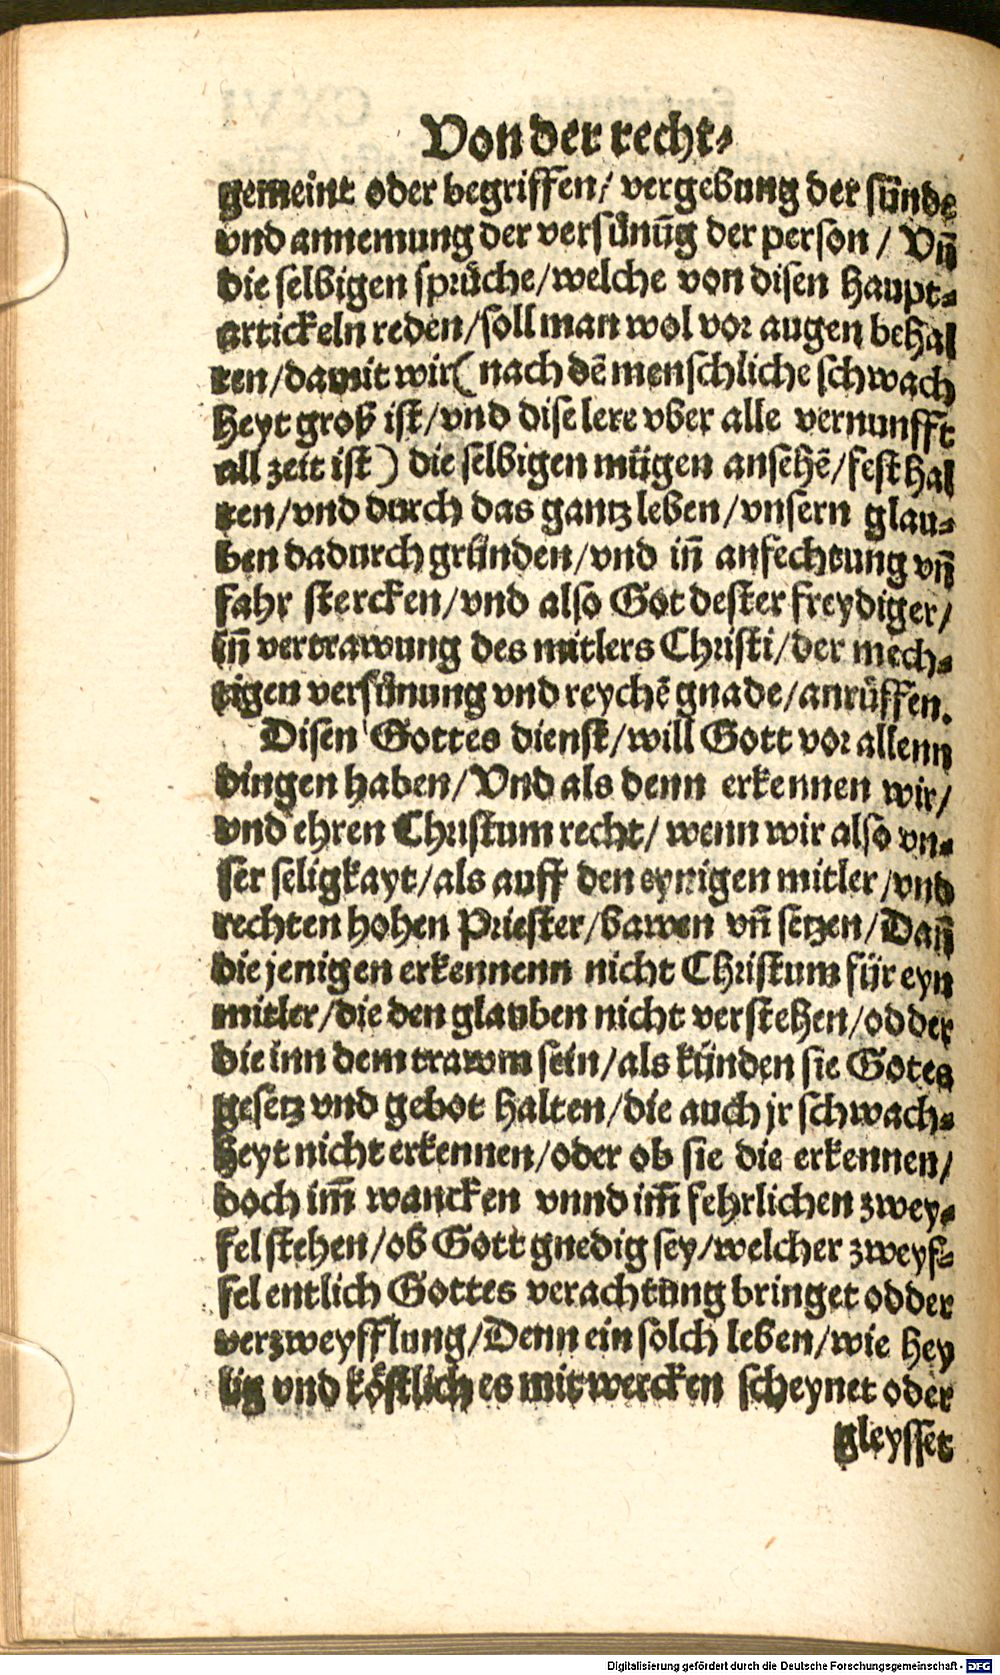 Von der recht⸗
gemeint oder begriffen/ vergebung der sünde
vnd annemung der versünūg der person / Vn̄
die selbigen sprüche/welche von disen haupt⸗
artickeln reden/soll man wol vor augen behal
ten/damit wir( nach dē menschliche schwach
heyt groß ist/vnd dise lere vber alle vernunfft
all zeit ist) die selbigen mügen ansehē/fest hal
ten/vnd durch das gantz leben/vnsern glau⸗
ben dadurch gründen/vnd in̄ anfechtung vn̄
fahr stercken/vnd also Got dester freydiger/
in̄ vertrawung des mitlers Christi/der mech⸗
tigen versünung vnd reychē gnade/anrüffen.
Disen Gottes dienst/will Gott vor allenn
dingen haben/Vnd als denn erkennen wir/
vnd ehren Christum recht/ wenn wir also vn⸗
ser seligkayt/als auff den eynigen mitler/vnd
rechten hohen Priester/bawen vn̄ setzen/Dan̄
die jenigen erkennenn nicht Christum für eyn
mitler/die den glauben nicht verstehen/odder
die inn dem trawm sein/als künden sie Gotes
gesetz vnd gebot halten/die auch jr schwach⸗
heyt nicht erkennen/oder ob sie die erkennen/
doch im̄ wancken vnnd im̄ fehrlichen zwey⸗
fel stehen/ob Gott gnedig sey/welcher zweyf⸗
fel entlich Gottes verachtung bringet odder
verzweyfflung/Denn ein solch leben/wie hey
lig vnd köstlich es mit wercken scheynet oder
gleysset
Digitalisierung gefördert durch die Deutsche Forschungsgemeinschaft - DFG